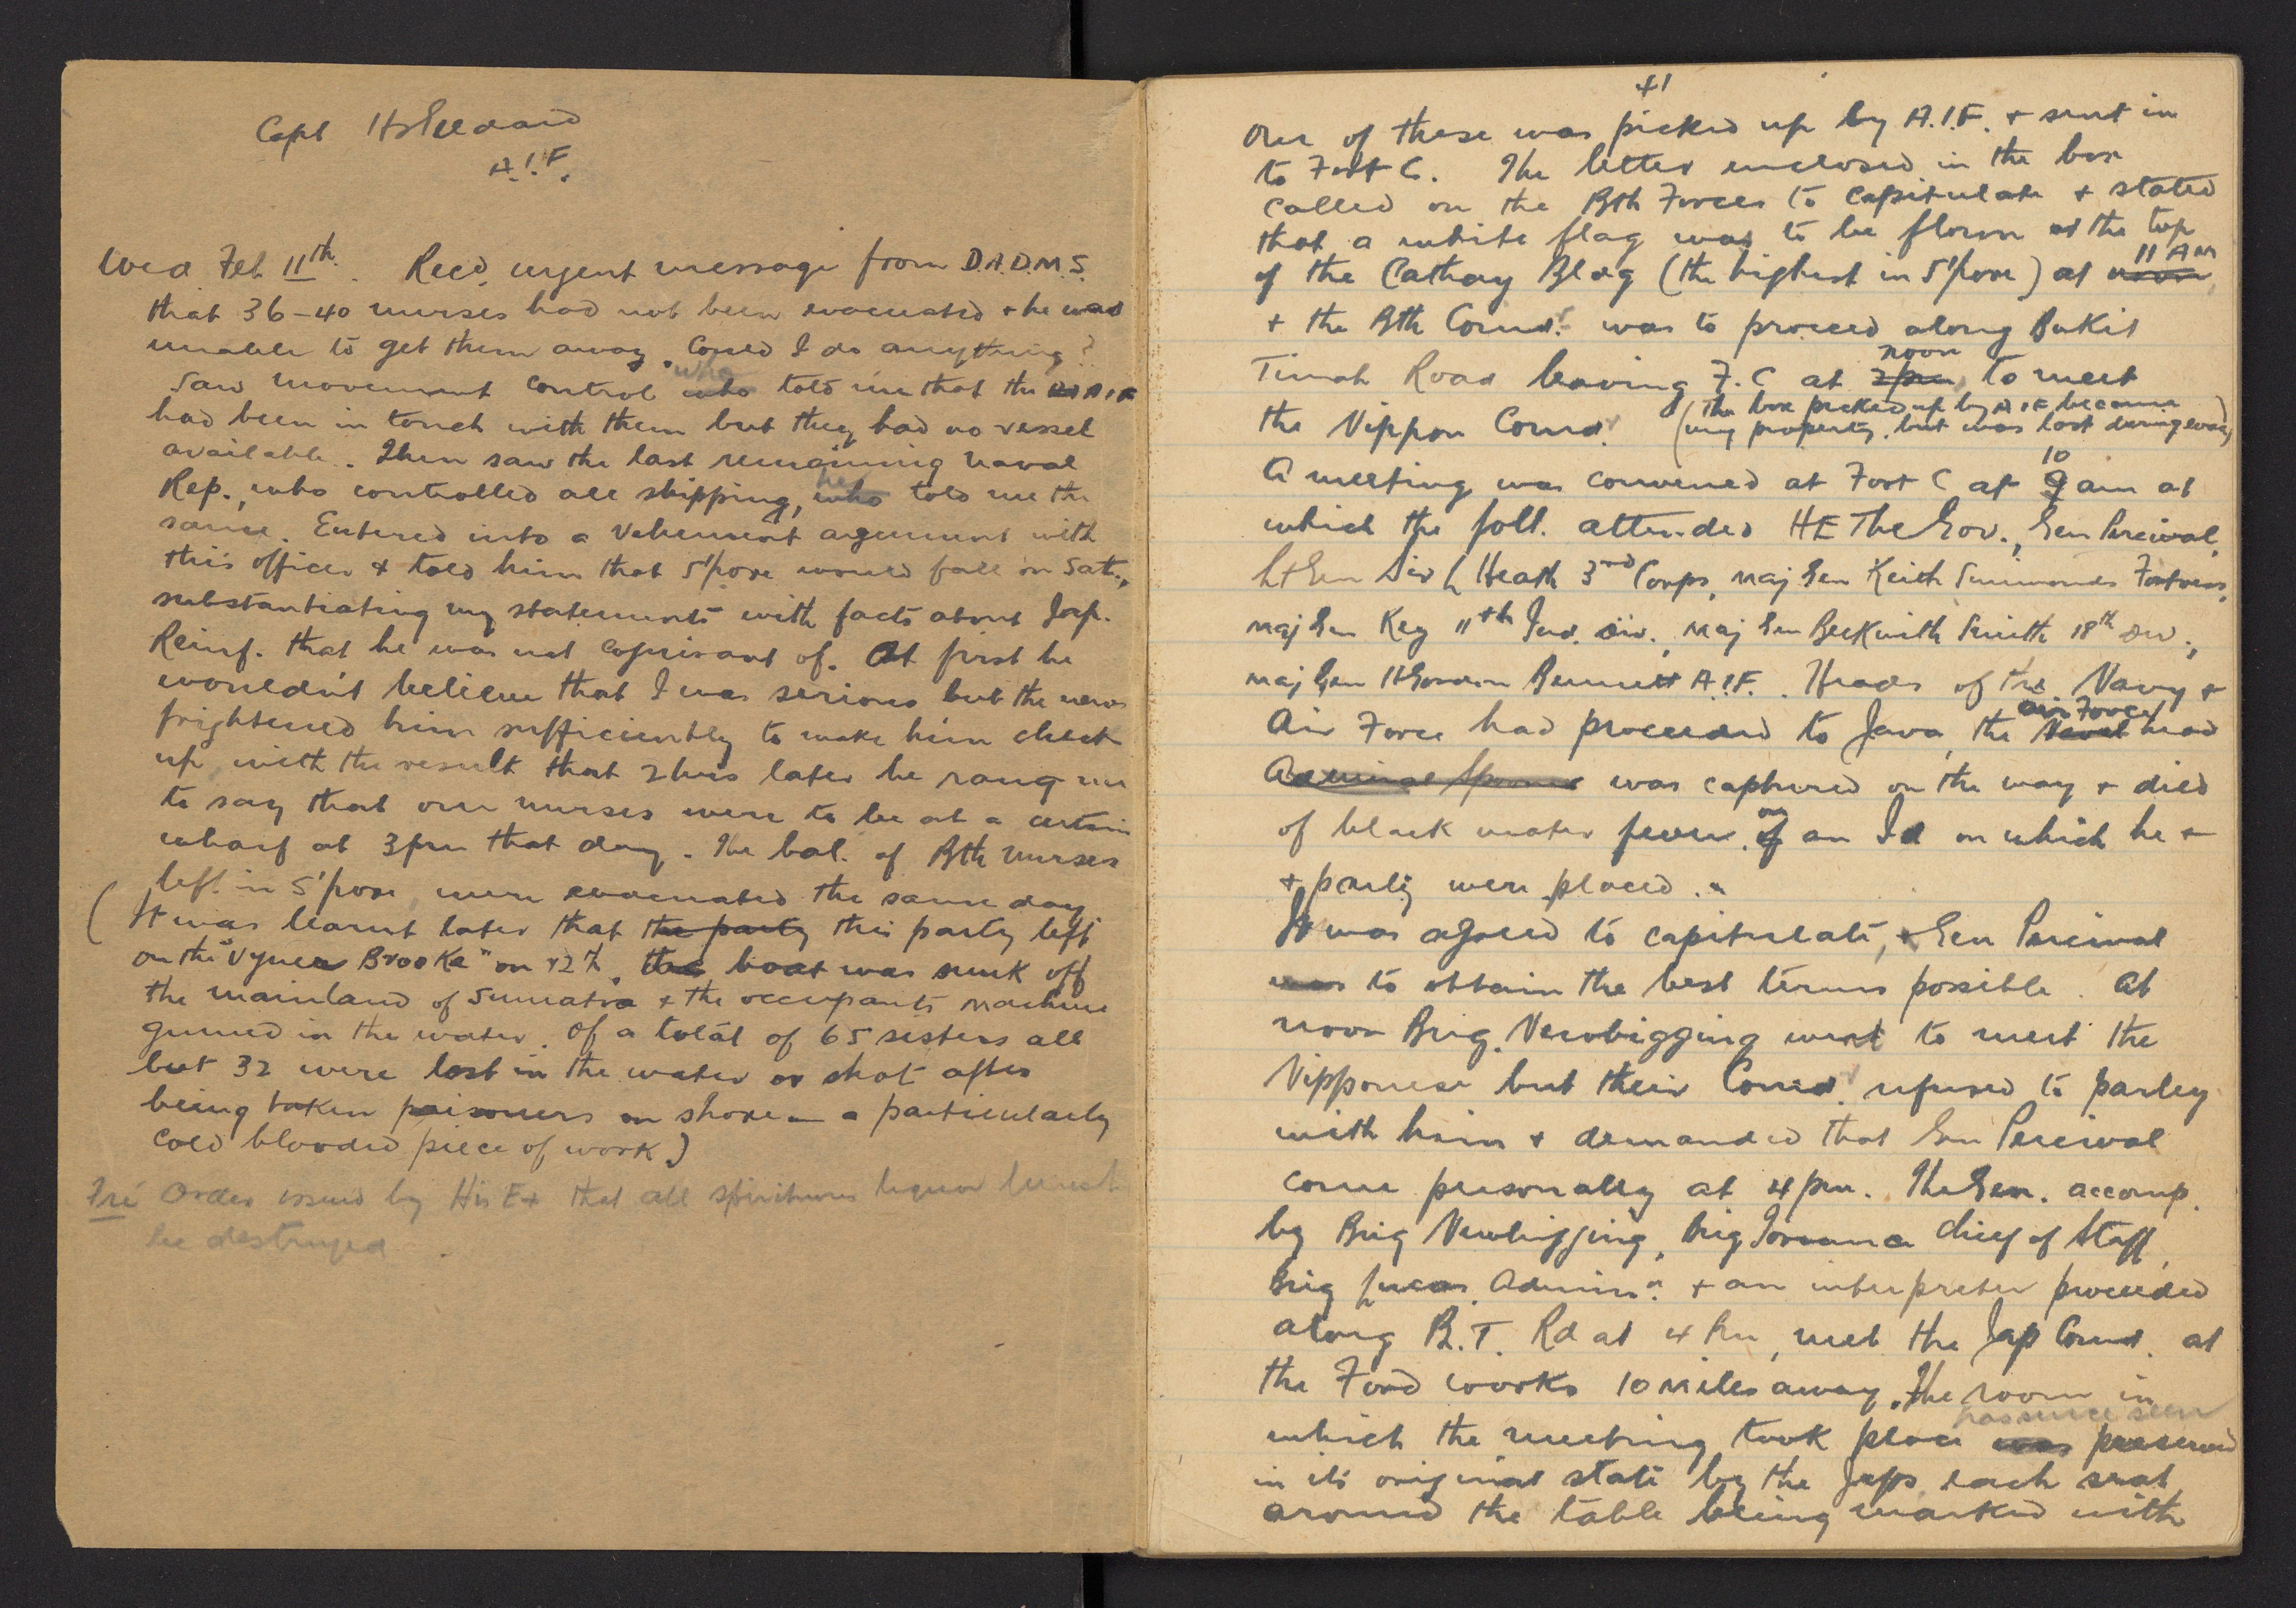 Capt H S Geldard
A.I.F.
Wed Feb 11th. Recd. urgent message from D.A.D.M.S.
that 36-40 nurses had not been evacuated + he was
unable to get them away. Could I do anything?
Saw movement control who told me that the A.I.F.
had been in touch with them but they had no vessel
available. Then saw the last remaining Naval
Rep., who controlled all shipping, he told me the
same. Entered into a vehement argument with
this officer + told him that S'pore would fall on Sat.,
substantiating my statements with facts about Jap.
Reinf. that he was not cognisant of. At first he
wouldn't believe that I was serious but the news
frightened him sufficiently to make him check
up with the result that 2 hrs later he rang me
to say that our nurses were to be at a certain
wharf at 3pm that day. The bal. of Bth nurses
left in S'pore were evacuated the same day
(It was learnt later that the party this party left
on the "Vyner Brooke" on 12th, the boat was sunk off
the mainland of Sumatra + the occupants machine
gunned in the water. Of a total of 65 sisters all
but 32 were lost in the water or shot after
being taken prisoners on shore - a particularly
cold blooded piece of work)
Fri Order issued by His Ex that all spirituous liquor must
be destroyed.
41
One of these was picked up by A.I.F. + sent in
to Fort C. The letter enclosed in the box
called on the Bth Forces to capitulate + stated
that a white flag was to be flown at the top
of the Cathay Bldg (the highest in S'pore) at noon 11 AM
+ the Bth Comdr. was to proceed along Bukit
Timah Road leaving F.C at 2pm noon to meet
the Nippon Comdr. (The box picked up by AIF became
my property, but was lost during evac)
A meeting was convened at Fort C at 9 10 am at
which the foll. attended HE The Gov., Gen Percival,
Lt Gen Sir L Heath 3rd Corps, Maj Gen Keith Simmonds Fortress,
Maj Gen Key 11th Ind. Div., Maj Gen Beckwith Smith 18th Div.,
Maj Gen H Gordon Bennett A.I.F. Heads of the Navy +
Air Force had proceeded to Java, the Naval Air Force head
Admiral Spooner was captured on the way + died
of black water fever of on an Id on which he +
+ party were placed.
It was agreed to capitulate, + Gen Percival
was to obtain the best terms possible. At
noon Brig. Newbigging went to meet the
Nipponese but their Comdr. refused to parley
with him + demanded that Gen Percival
come personally at 4 pm. The Gen. accomp.
by Brig Newbigging, Brig Torrance Chief of Staff,
Brig Lucas Adminn. + an interpreter proceeded
along B.T. Rd at 4 pm, met the Jap Comdr. at
the Ford works 10 miles away. The room in
which the meeting took place was has since been preserved
in its original state by the Japs each seat
around the table being marked with